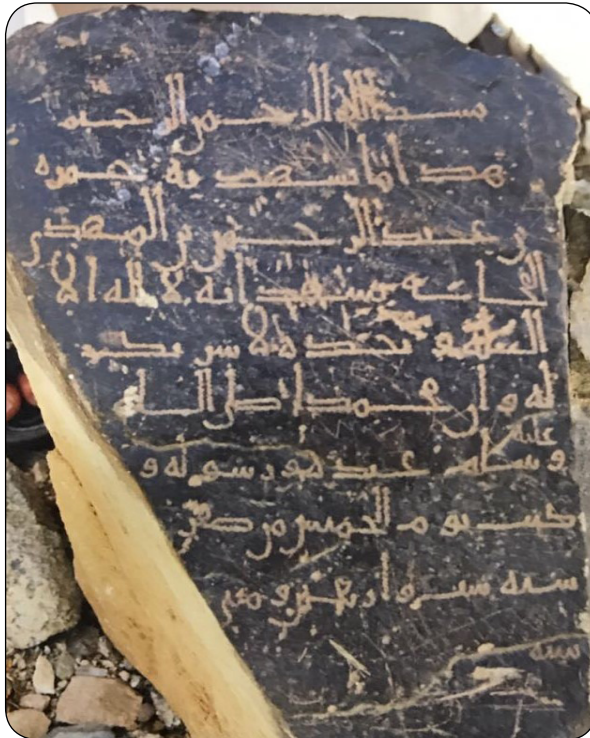 بسم الله الرحمن الرحيم
هذا ما يشهد به حمزه
بن عبد الرحمن بن
يشهد انه لا اله الا
الله وحده لا شريك
له و ان محمدا صلى الله
عليه
و سلم عبده ورسوله و
كتب يوم الخميس من صفر
سنه واربعين و
سنه